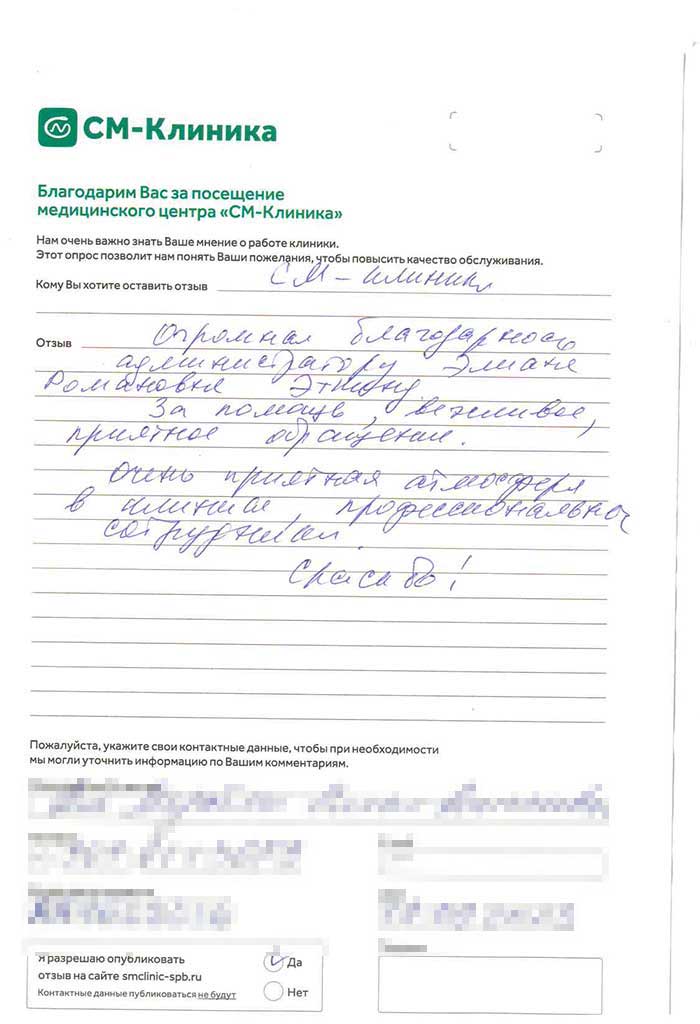 СМ-Клиника
Благодарим Вас за посещение
медицинского центра «СМ-Клиника»
Нам очень важно знать Ваше мнение о работе клиники.
Этот опрос позволит нам понять Ваши пожелания, чтобы повысить качество обслуживания.
Кому Вы хотите оставить отзыв СМ-клиники
Отзыв Огромная благодарность
администратору Элиане
Романовне
За помощь, вежливое,
приятное обращение.
Очень приятная атмосфера
в клинике, профессиональные
сотрудники.
Спасибо!
Пожалуйста, укажите свои контактные данные, чтобы при необходимости
мы могли уточнить информацию по Вашим комментариям.
Я разрешаю опубликовать
отзыв на сайте smclinic-spb.ru
Контактные данные публиковаться не будут
Да
Нет